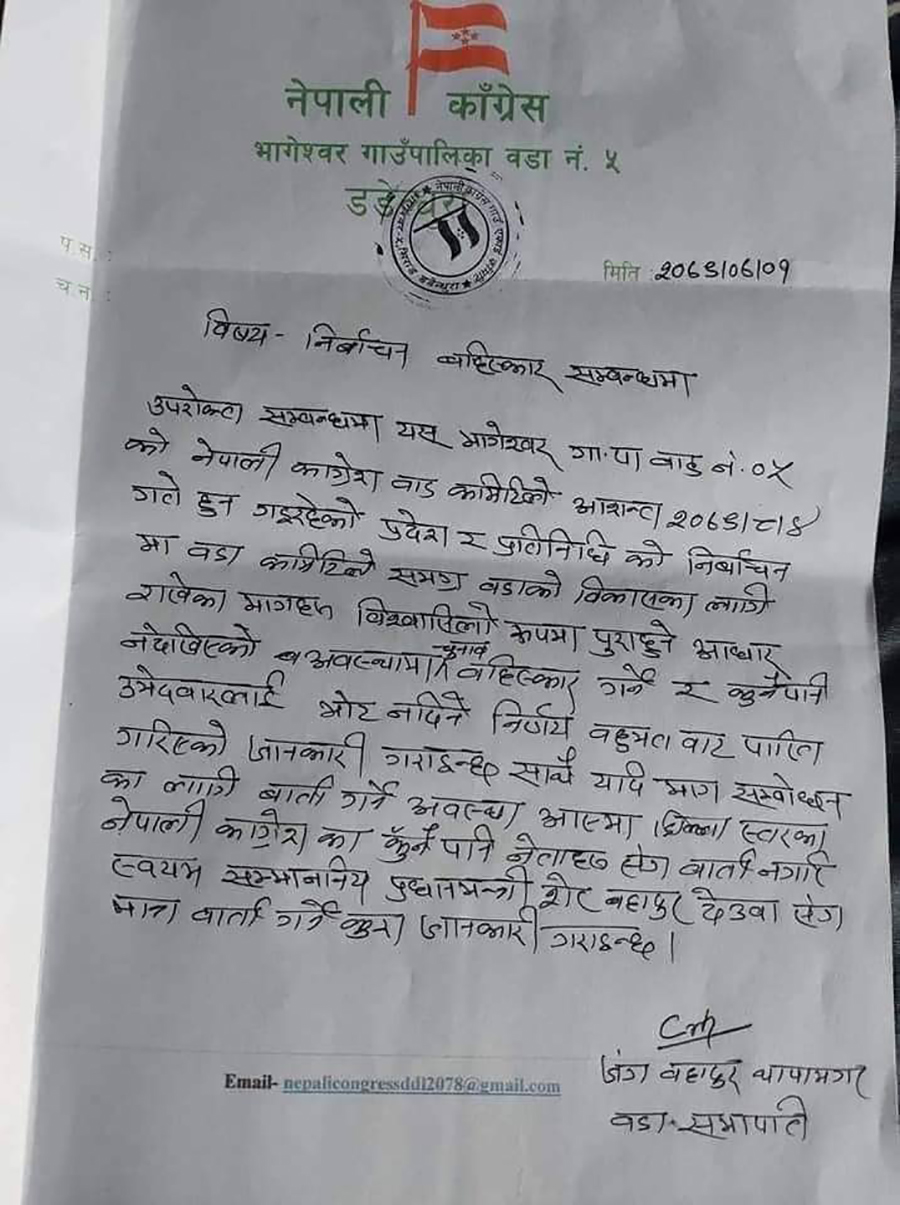 नेपाली काँग्रेस
भागेश्वर गाउँपालिका वडा नं. ५
डडेल्धुरा
प.स. :
च.न. :
मिति : २०७९/०७/०१
विषय - निर्वाचन बहिस्कार सम्बन्धमा
उपरोक्त सम्बन्धमा यस भागेश्वर गा.पा वाड नं. ०५
को नेपाली काग्रेश वाड कमिटिले आशन्त २०७९/८/४
गते हुन गइरहेको प्रदेश र प्रतिनिधि को निर्बाचन
मा वडा कमिटिले समग्र वडाको विकासका लागि
राखेका मागहरु विश्वासिलो रूपमा पुराहुने आधार
नदेखिएको अवस्थामा चुनाव वहिस्कार गर्ने र कुनैपनि
उमेदवारलाई भोट नदिने निर्णय वहुमत वाट पारित
गरिएको जानकारी गराइन्छ साथै यदि माग सम्वोधन
का लागि बार्ता गर्ने अवस्था आएमा जिल्ला स्तरका
नेपाली काग्रेश का कुनै पनि नेताहरु संग वार्ता नगरि
स्वयम सम्माननिय प्रधानमन्त्री शेर बहादुर देउवा संग
मात्र वार्ता गर्ने कुरा जानकारी गराइन्छ ।
जंग वहादुर थापामगर
वडा सभापति
Email- nepalicongressddl2078@gmail.com